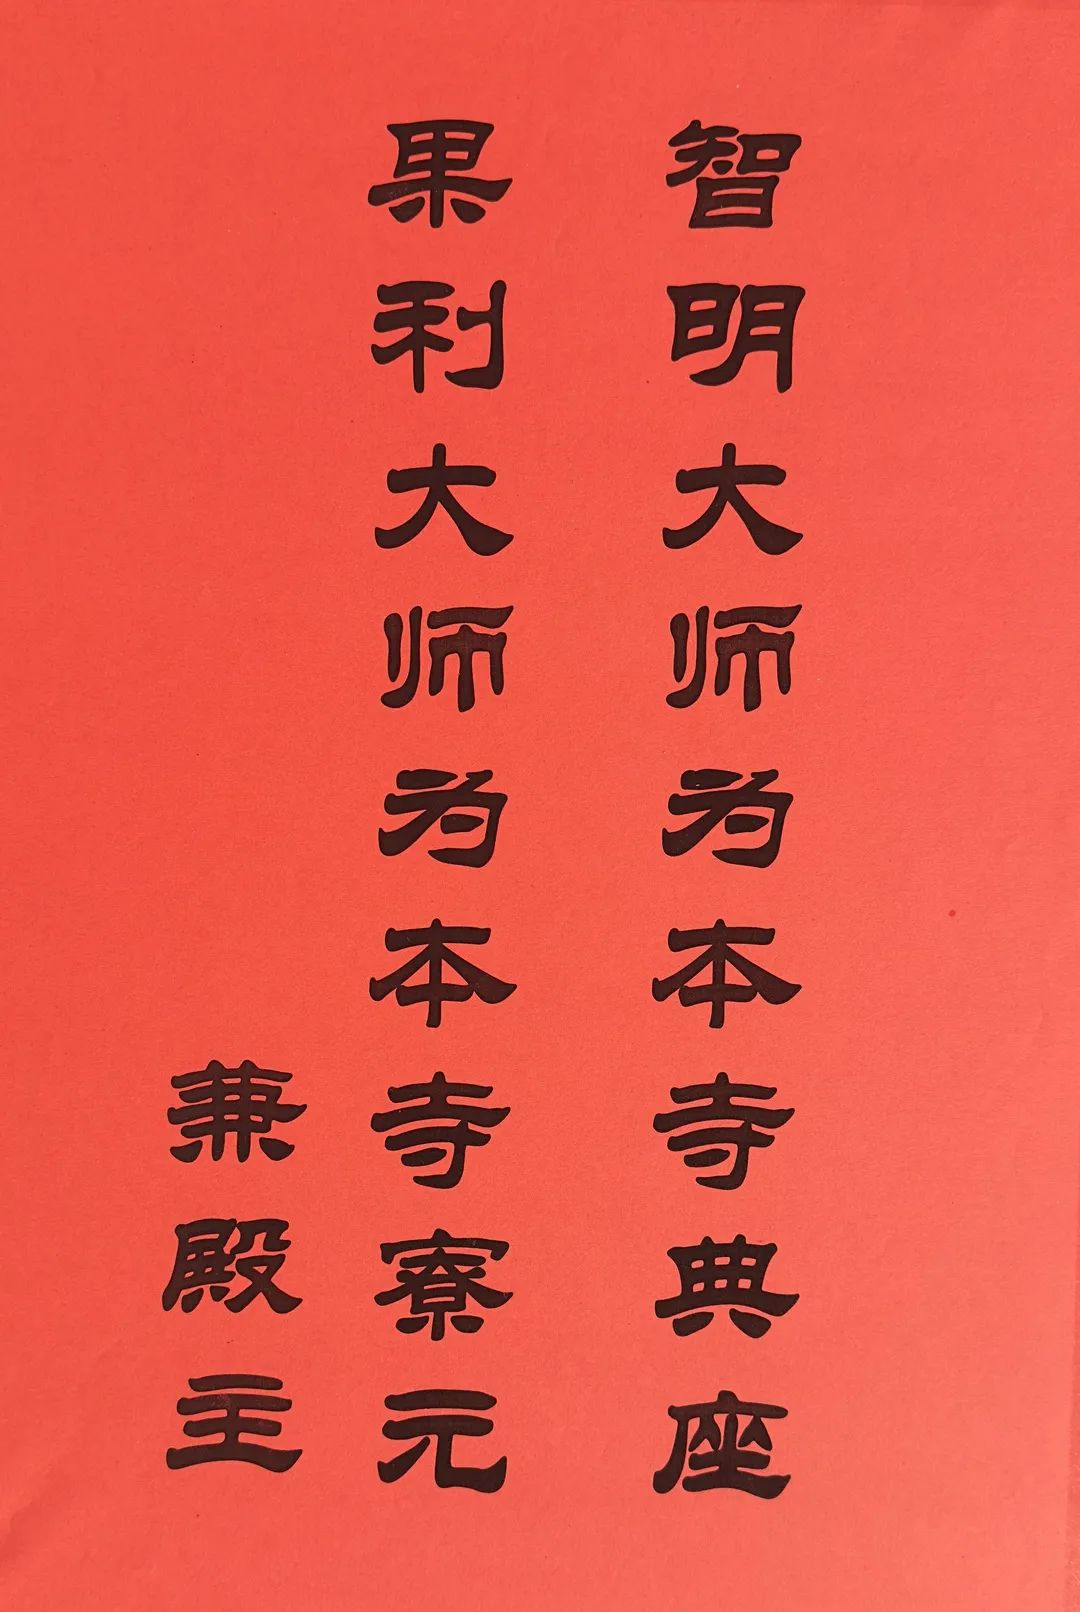 智明大师为本寺典座
果利大师为本寺寮元
兼殿主